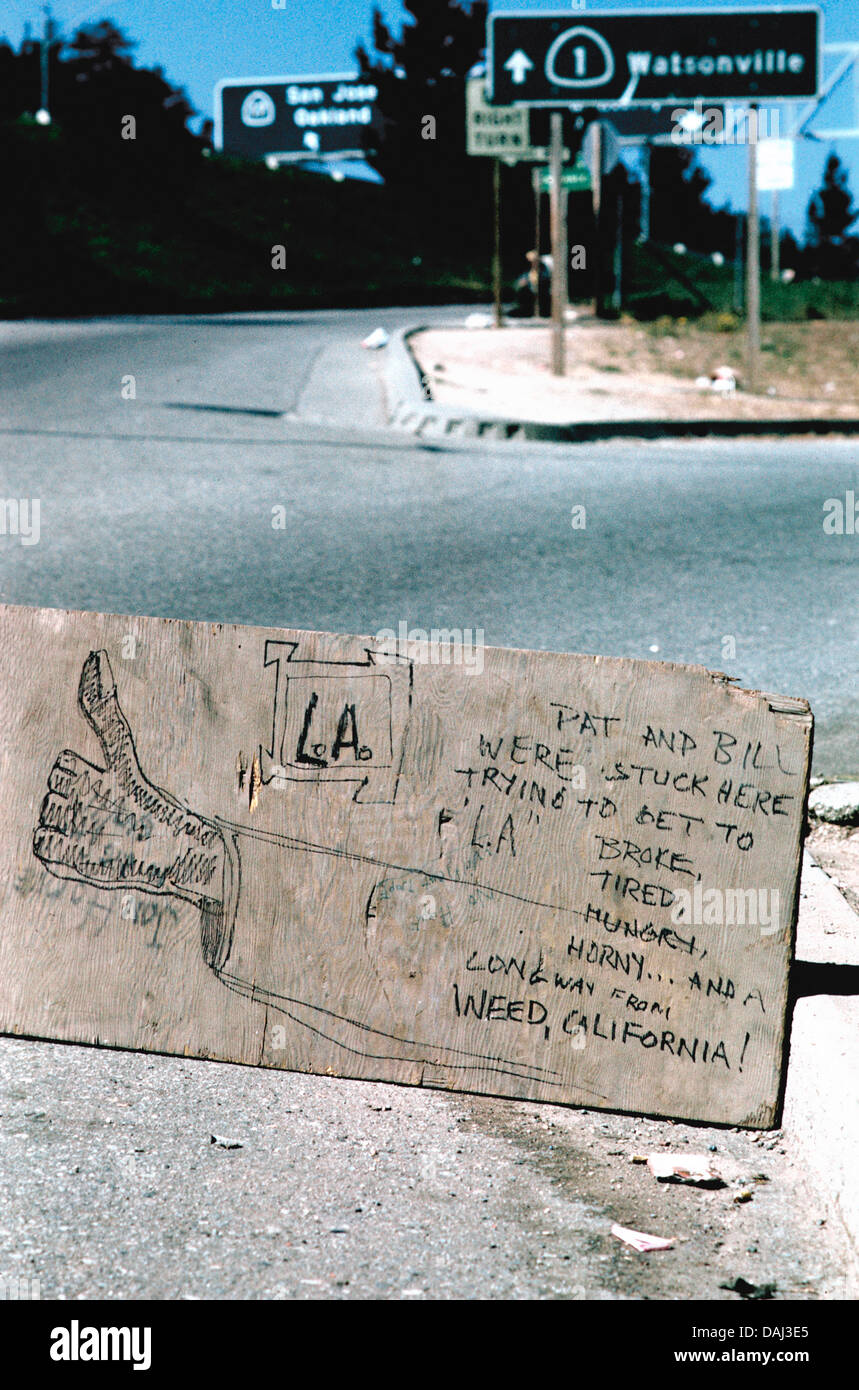 1 Watsonville
San Jose
Oakland
RIGHT
TURN
L.A.
PAT AND BILL
WERE STUCK HERE
TRYING TO GET TO
"L.A"
BROKE,
TIRED,
HUNGRY,
HORNY... AND A
LONG WAY FROM
WEED, CALIFORNIA!
alamy
Image ID: DAJ3E5
www.alamy.com